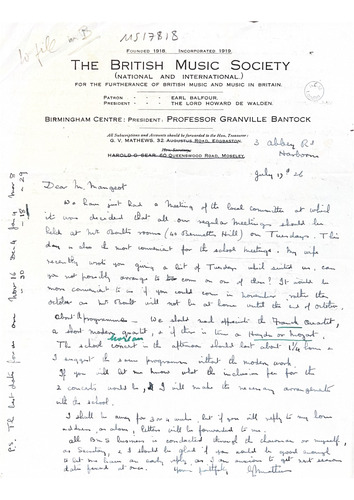 to file in B
MS17818
FOUNDED 1918. INCORPORATED 1919.
THE BRITISH MUSIC SOCIETY
(NATIONAL AND INTERNATIONAL.)
FOR THE FURTHERANCE OF BRITISH MUSIC AND MUSIC IN BRITAIN.
PATRON - - - EARL BALFOUR.
PRESIDENT - - - THE LORD HOWARD DE WALDEN.
BIRMINGHAM CENTRE: PRESIDENT: PROFESSOR GRANVILLE BANTOCK
All Subscriptions and Accounts should be forwarded to the Hon. Treasurer:
G. V. MATHEWS, 32 AUGUSTUS ROAD, EDGBASTON.
Hon. Secretary
HAROLD G. SEAR, 60 QUEENSWOOD ROAD, MOSELEY.
3 Abbey Rd
Harborne
July 17th 26
Dear Mr. Mangeot
We have just had a Meeting of the local committee at which
it was decided that all our regular Meetings should be
held at Mr rooms (40 Bennetts Hill) on Tuesdays. This
day is also the most convenient for the school meetings. My wife
recently wrote you giving a list of Tuesdays which suited us. Can
you not possibly arrange to come on one of them? It would be
more convenient to us if you could come in November rather than
October as Mr will not be at home until the end of October
About Programme - We should most appreciate the Franck Quartet,
a short modern quartet, & if there is time a Haydn or Mozart.
The school concert in the afternoon should last about 1¼ hours &
I suggest the same programme without the modern work.
If you will let me know what the inclusive fee for the
2 concerts would be, I will make the necessary arrangements
with the school.
I shall be away for but if you will reply to my home
address, as above, letters will be forwarded to me.
All BMS business is conducted through the chairman or myself,
as Secretary, & I should be glad if you would be good enough
to let me have an early reply, as I am anxious to get next season's
dates fixed at once.
Yours faithfully
P.S. The last dates for us are Nov 16 Dec 4 Jan 4 Mar 8
- 30 - 18 - 29